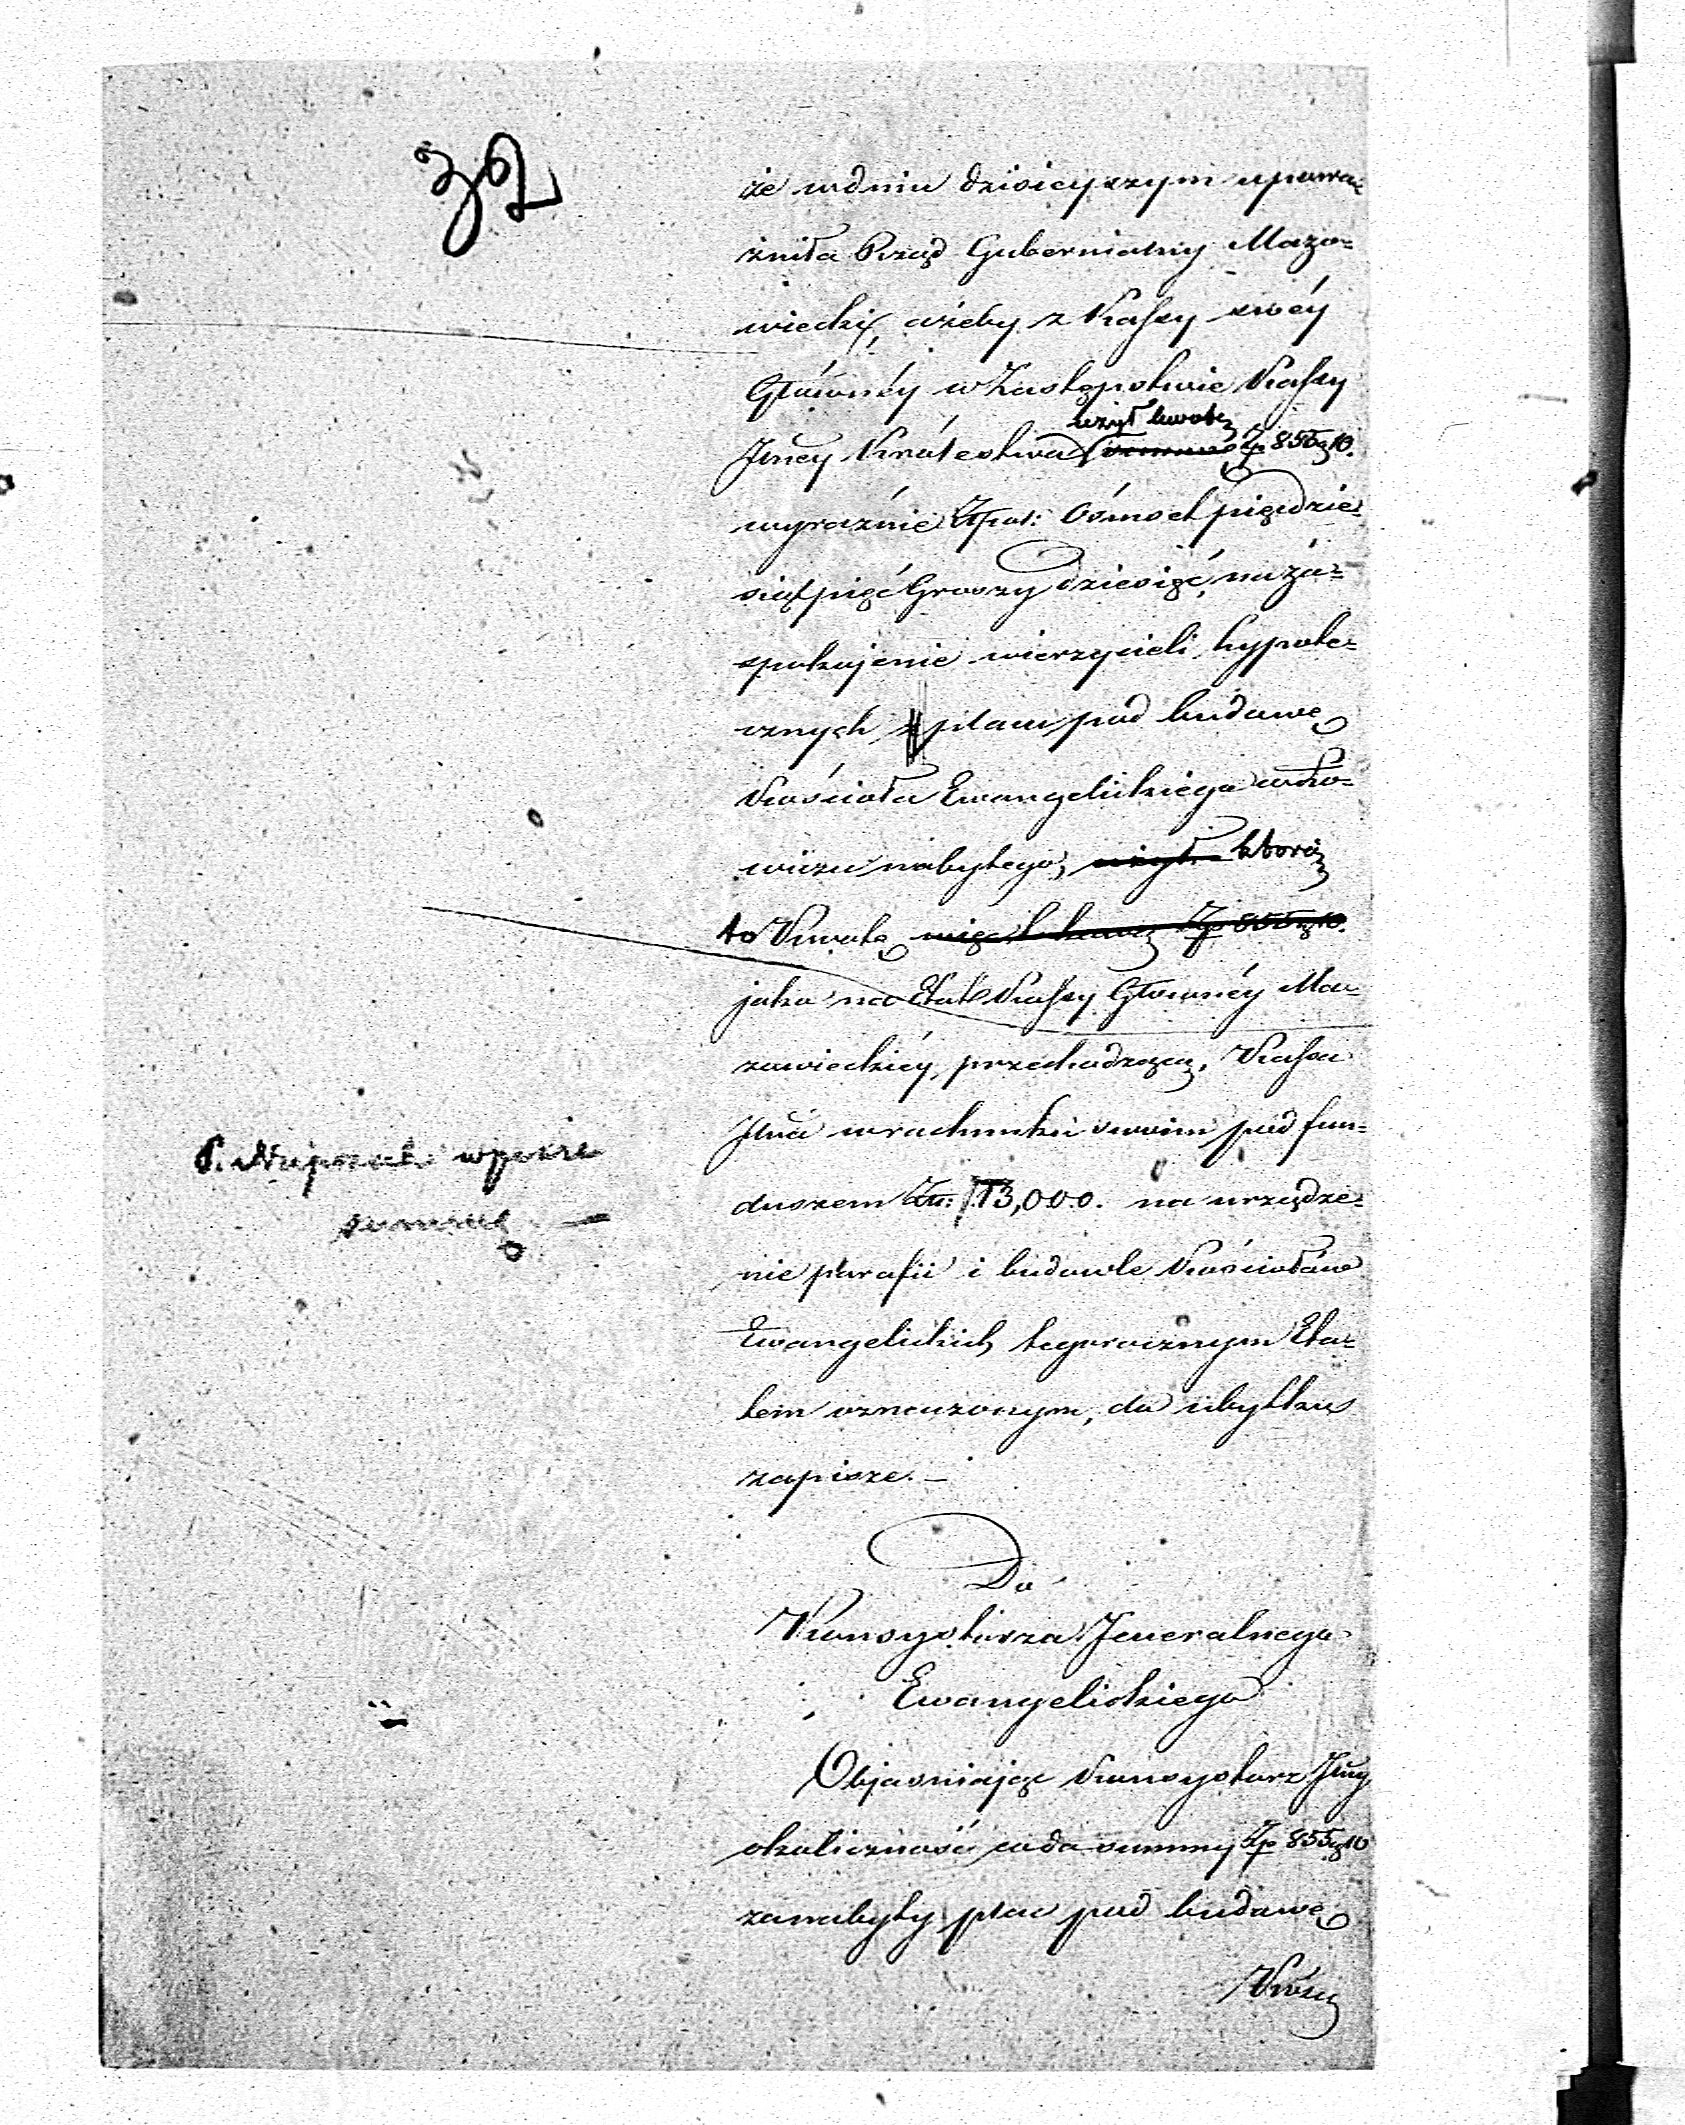 32
że w dniu dzisieyszym upowa-
żniła Rząd Gubernialny Mazo-
wiecki, ażeby z Kassy swéy
Głównéy w Zastępstwie Kassy
użył kwotę
Jlnéy Królestwa summę Zp 855 g 10.
wyraźnie Złpol: Ośmset pięćdzie-
siąt pięć Groszy dziesięć, na za-
spokojenie wierzycieli hypote-
cznych z placu pod budowę
Kościoła Ewangelickiego w Ło-
wiczu nabytego, użyła którą
to Kwotę więc Zp 855 g 10.
jako na Etat Kassy Głównéy Ma-
zowieckiéy przechodzącą, Kassa
Jlna w rachunku swoim pod fun-
P. wypisze
summę. —
duszem Złp: 113,000. na urządze-
nie parafii i budowle Kościołów
Ewangelickich tegorocznym Eta-
tem oznaczonym, do ubytku
zapisze. —
Do
Konsystorza Jeneralnego
Ewangelickiego
Objaśniając Konsystorz Jlny
okoliczność co do summy Zp 855 g 10
za nabyty plac pod budowę